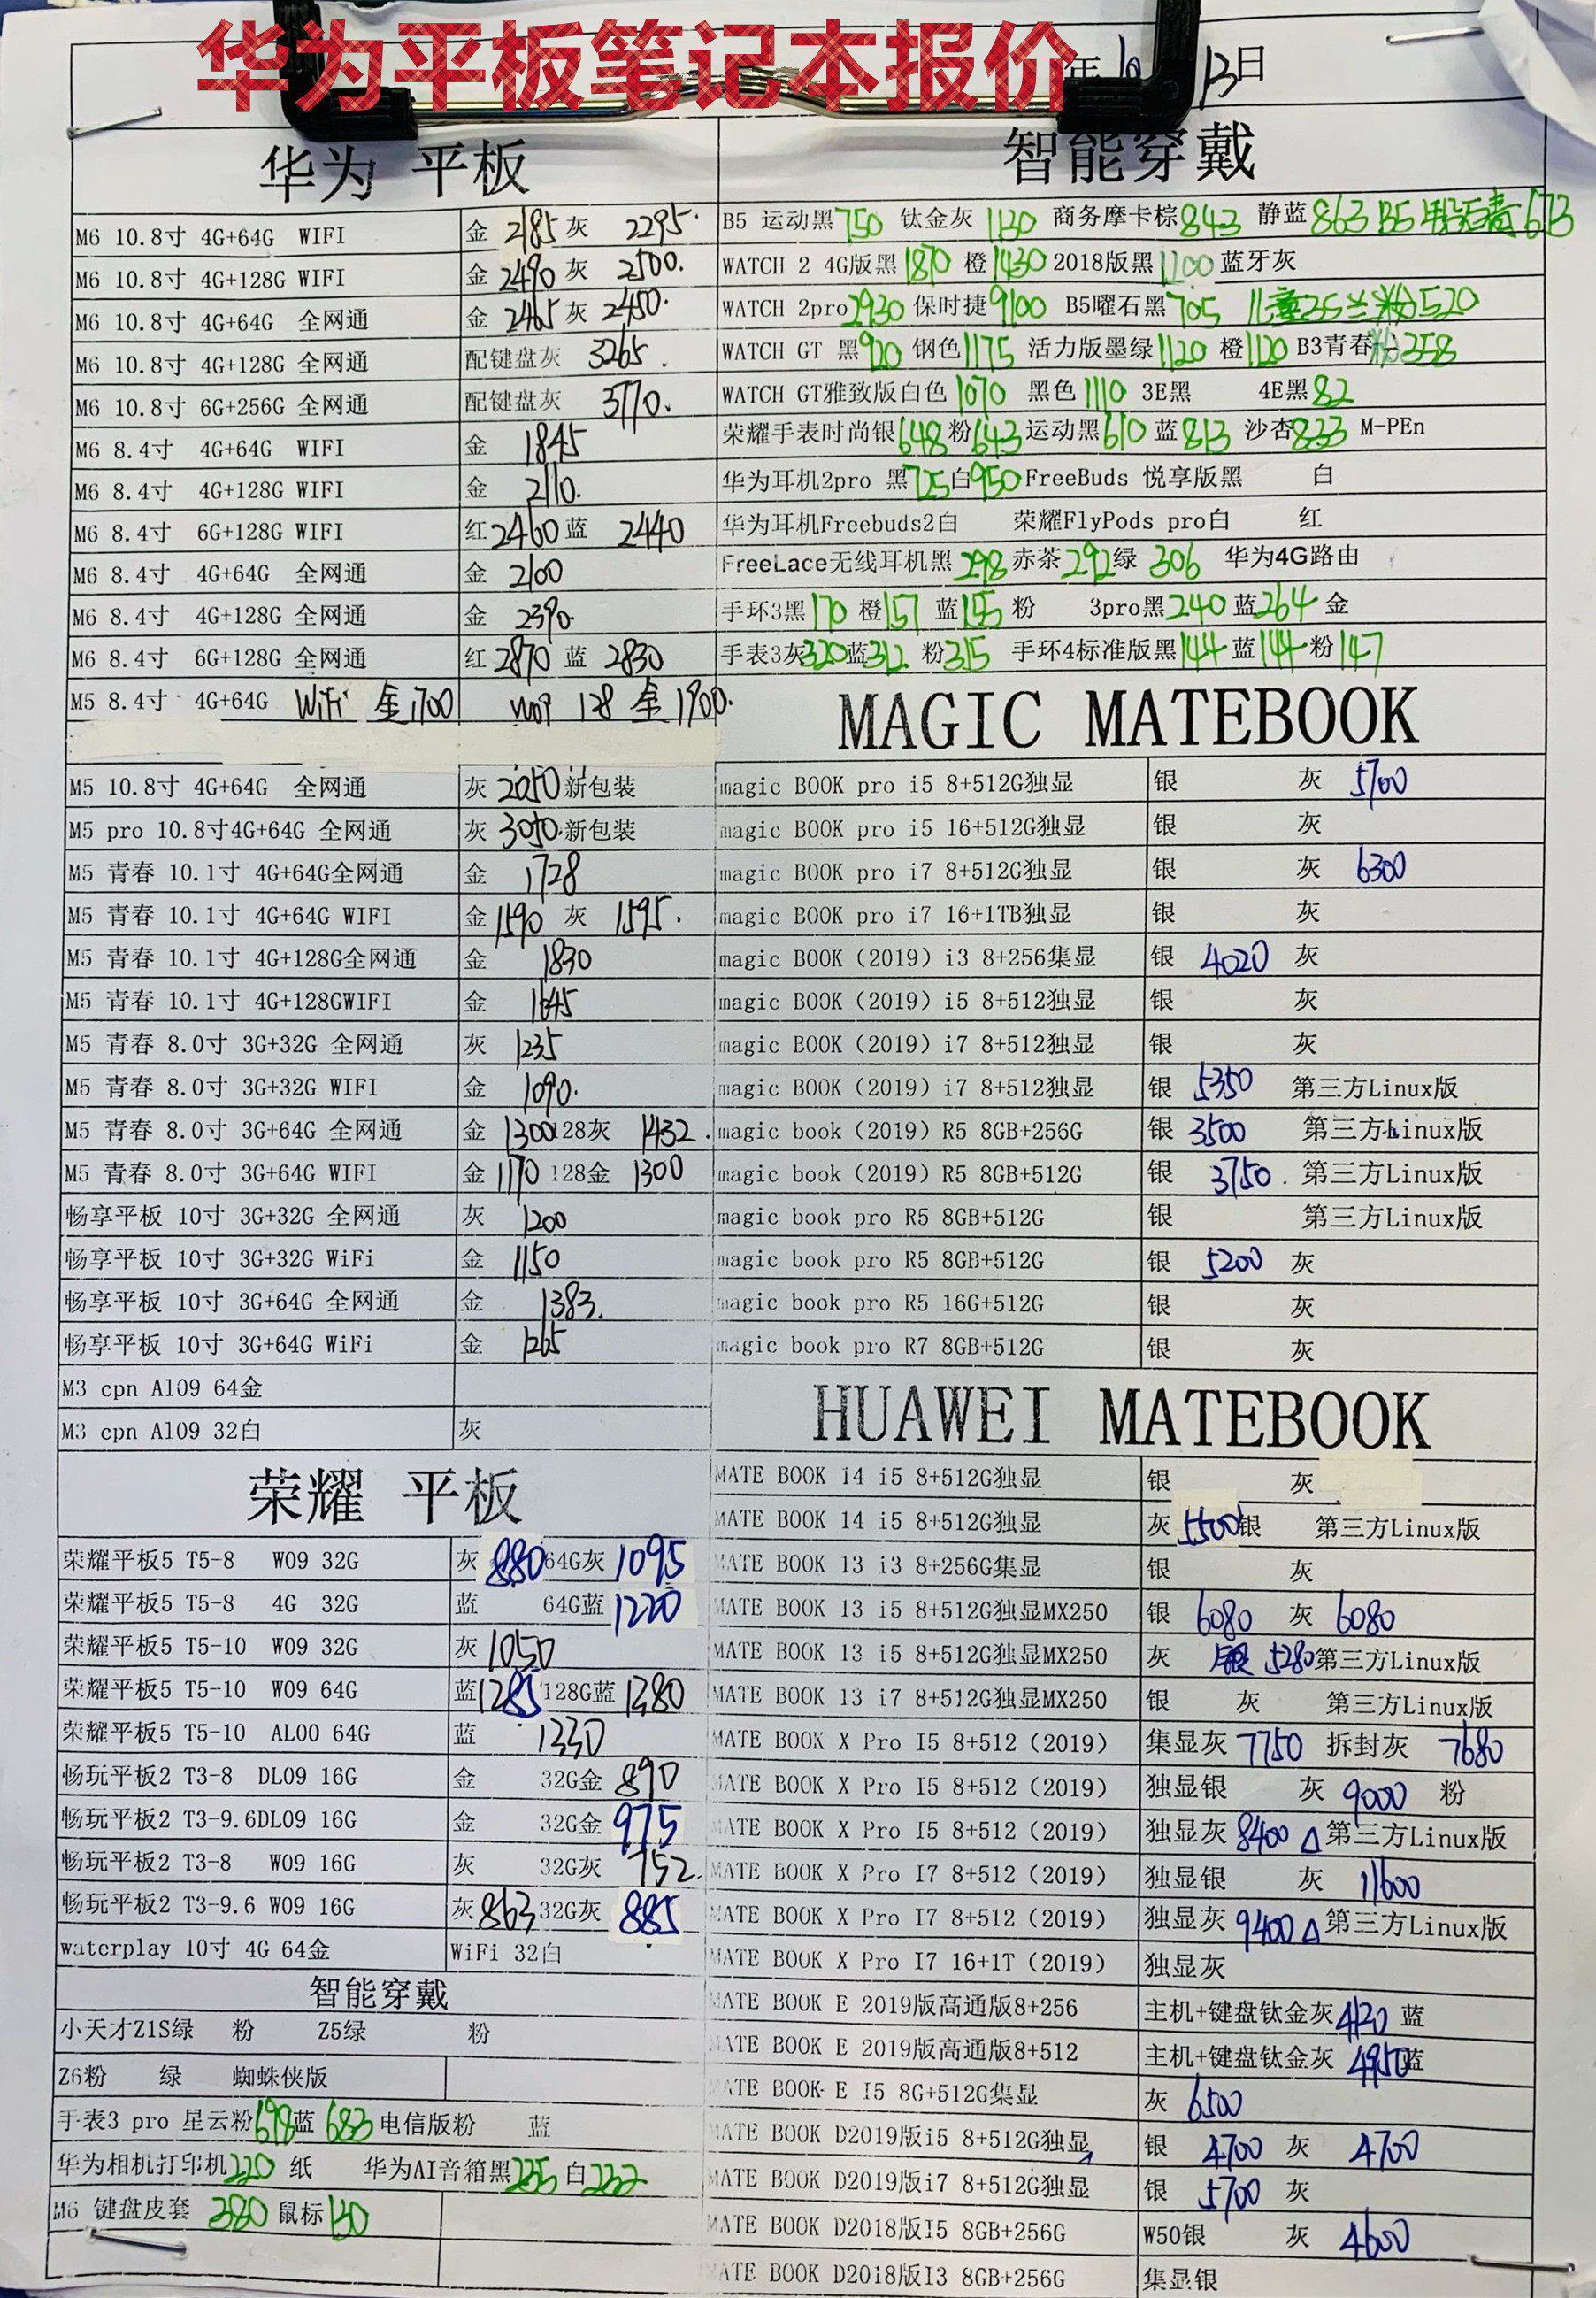 华为平板笔记本报价
年 10 13日
华为 平板
M6 10.8寸 4G+64G WIFI 金 2185 灰 2295.
M6 10.8寸 4G+128G WIFI 金 2490 灰 2500.
M6 10.8寸 4G+64G 全网通 金 2465 灰 2450.
M6 10.8寸 4G+128G 全网通 配键盘灰 3265.
M6 10.8寸 6G+256G 全网通 配键盘灰 3770.
M6 8.4寸 4G+64G WIFI 金 1845
M6 8.4寸 4G+128G WIFI 金 2110.
M6 8.4寸 6G+128G WIFI 红 2460 蓝 2440
M6 8.4寸 4G+64G 全网通 金 2100
M6 8.4寸 4G+128G 全网通 金 2390.
M6 8.4寸 6G+128G 全网通 红 2870 蓝 2830
M5 8.4寸 4G+64G WiFi 金 1700 128 金 1900.
M5 10.8寸 4G+64G 全网通 灰 2050 新包装
M5 pro 10.8寸4G+64G 全网通 灰 3050. 新包装
M5 青春 10.1寸 4G+64G全网通 金 1728
M5 青春 10.1寸 4G+64G WIFI 金 1590 灰 1595.
M5 青春 10.1寸 4G+128G全网通 金 1830
M5 青春 10.1寸 4G+128GWIFI 金 1645
M5 青春 8.0寸 3G+32G 全网通 灰 1235
M5 青春 8.0寸 3G+32G WIFI 金 1090.
M5 青春 8.0寸 3G+64G 全网通 金 1300 128灰 1432.
M5 青春 8.0寸 3G+64G WIFI 金 1170 128金 1300
畅享平板 10寸 3G+32G 全网通 灰 1200
畅享平板 10寸 3G+32G WiFi 金 1150
畅享平板 10寸 3G+64G 全网通 金 1383.
畅享平板 10寸 3G+64G WiFi 金 1265
M3 cpn Al09 64金
M3 cpn Al09 32白 灰
荣耀 平板
荣耀平板5 T5-8 W09 32G 灰 880 64G灰 1095
荣耀平板5 T5-8 4G 32G 蓝 64G蓝 1220
荣耀平板5 T5-10 W09 32G 灰 1050
荣耀平板5 T5-10 W09 64G 蓝 1285 128G蓝 1380
荣耀平板5 T5-10 AL00 64G 蓝 1330
畅玩平板2 T3-8 DL09 16G 金 32G金 890
畅玩平板2 T3-9.6DL09 16G 金 32G金 975
畅玩平板2 T3-8 W09 16G 灰 32G灰 752.
畅玩平板2 T3-9.6 W09 16G 灰 863 32G灰 885
waterplay 10寸 4G 64金 WiFi 32白
智能穿戴
小天才Z1S绿 粉 Z5绿 粉
Z6粉 绿 蜘蛛侠版
手表3 pro 星云粉 698 蓝 683 电信版粉 蓝
华为相机打印机 220 纸 华为AI音箱黑 235 白 232
M6 键盘皮套 380 鼠标 130
智能穿戴
B5 运动黑 750 钛金灰 1130 商务摩卡棕 843 静蓝 863 B5 673
WATCH 2 4G版黑 1870 橙 1430 2018版黑 1100 蓝牙灰
WATCH 2pro 2930 保时捷 9100 B5曜石黑 705 粉 520
WATCH GT 黑 920 钢色 1175 活力版墨绿 1120 橙 1120 B3青春 粉 258
WATCH GT雅致版白色 1070 黑色 1110 3E黑 4E黑 82
荣耀手表时尚银 648 粉 643 运动黑 610 蓝 813 沙杏 833 M-PEn
华为耳机2pro 黑 725 白 950 FreeBuds 悦享版黑 白
华为耳机Freebuds2白 荣耀FlyPods pro白 红
FreeLace无线耳机黑 298 赤茶 292 绿 306 华为4G路由
手环3黑 170 橙 157 蓝 155 粉 3pro黑 240 蓝 264 金
手表3灰 320 蓝 312 粉 315 手环4标准版黑 144 蓝 144 粉 147
MAGIC MATEBOOK
magic BOOK pro i5 8+512G独显 银 灰 5700
magic BOOK pro i5 16+512G独显 银 灰
magic BOOK pro i7 8+512G独显 银 灰 6300
magic BOOK pro i7 16+1TB独显 银 灰
magic BOOK（2019）i3 8+256集显 银 4020 灰
magic BOOK（2019）i5 8+512独显 银 灰
magic BOOK（2019）i7 8+512独显 银 灰
magic BOOK（2019）i7 8+512独显 银 5350 第三方Linux版
magic book（2019）R5 8GB+256G 银 3500 第三方Linux版
magic book（2019）R5 8GB+512G 银 3750. 第三方Linux版
magic book pro R5 8GB+512G 银 第三方Linux版
magic book pro R5 8GB+512G 银 5200 灰
magic book pro R5 16G+512G 银 灰
magic book pro R7 8GB+512G 银 灰
HUAWEI MATEBOOK
MATE BOOK 14 i5 8+512G独显 银 灰
MATE BOOK 14 i5 8+512G独显 灰 5500 银 第三方Linux版
MATE BOOK 13 i3 8+256G集显 银 灰
MATE BOOK 13 i5 8+512G独显MX250 银 6080 灰 6080
MATE BOOK 13 i5 8+512G独显MX250 灰 银 5280 第三方Linux版
MATE BOOK 13 i7 8+512G独显MX250 银 灰 第三方Linux版
MATE BOOK X Pro I5 8+512（2019） 集显灰 7750 拆封灰 7680
MATE BOOK X Pro I5 8+512（2019） 独显银 灰 9000 粉
MATE BOOK X Pro I5 8+512（2019） 独显灰 8400 △ 第三方Linux版
MATE BOOK X Pro I7 8+512（2019） 独显银 灰 11600
MATE BOOK X Pro I7 8+512（2019） 独显灰 9400 △ 第三方Linux版
MATE BOOK X Pro I7 16+1T（2019） 独显灰
MATE BOOK E 2019版高通版8+256 主机+键盘钛金灰 4120 蓝
MATE BOOK E 2019版高通版8+512 主机+键盘钛金灰 4950 蓝
MATE BOOK E I5 8G+512G集显 灰 6500
MATE BOOK D2019版i5 8+512G独显 银 4700 灰 4700
MATE BOOK D2019版i7 8+512G独显 银 5700 灰
MATE BOOK D2018版I5 8GB+256G W50银 灰 4600
MATE BOOK D2018版I3 8GB+256G 集显银